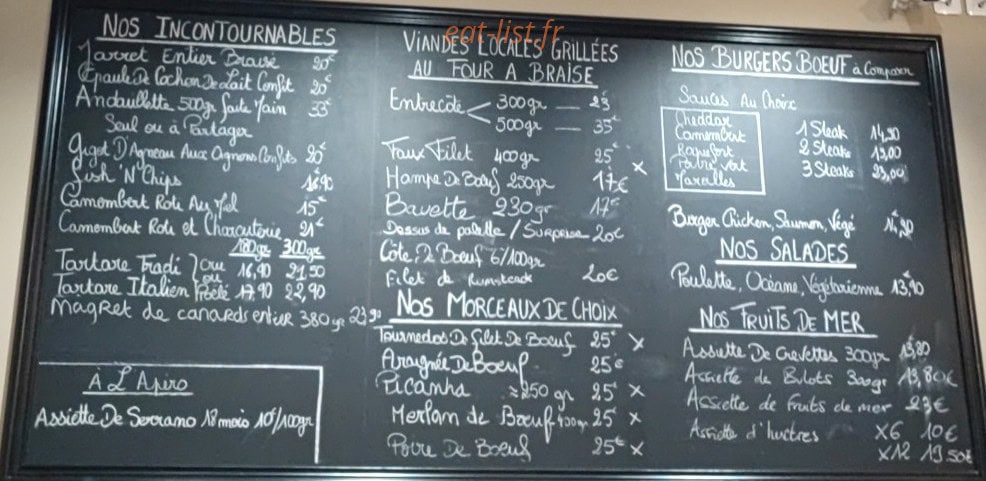 eat-list.fr
NOS INCONTOURNABLES
Jarret Entier Braisé 20€
Epaule De Cochon De Lait Confit 20€
Andouillette 500gr faite Main 33€
Seul ou à Partager
Gigot D'Agneau Aux Oignons Confits 20€
Fish 'N' Chips 16,90
Camembert Roti Au Miel 15€
Camembert Roti et Charcuterie 21€
180gr 300gr
Tartare Tradi } Cru 16,90 21,50
ou
Tartare Italien Poêlé 17,90 22,90
Magret de canards entier 380gr 23,90
À L'Apiro
Assiette De Serrano 18 mois 10€/100gr
VIANDES LOCALES GRILLÉES
AU FOUR A BRAISE
Entrecôte < 300gr — 23
500gr — 35€
Faux Filet 400gr 25€ x
Hampe De Bœuf 250gr 17€
Bavette 230gr 17€
Dessus de palette / SURPRISE 20€
Côte De Boeuf 6/100gr
Filet de Rumsteack 20€
NOS MORCEAUX DE CHOIX
Tournedos De filet De Boeuf 25€ x
Araignée De Boeuf 25€
Picanha ≥250 gr 25€ x
Merlan de Boeuf 400gr 25€ x
Poire De Boeuf 25€ x
NOS BURGERS BOEUF à Composer
Sauces Au Choix
Cheddar
Camembert
Roquefort
Poivre Vert
Maroilles
1 Steak 14,90
2 Steaks
3 Steaks 23,00
Burger Chicken, Saumon, Végé 14,90
NOS SALADES
Poulette, Océane, Végétarienne 13,90
NOS FRUITS DE MER
Assiette De Crevettes 300gr 13,80
Assiette de Bulots 300gr 13,80€
Assiette de fruits de mer 23€
Assiette d'huîtres X6 10€
X12 19.50€